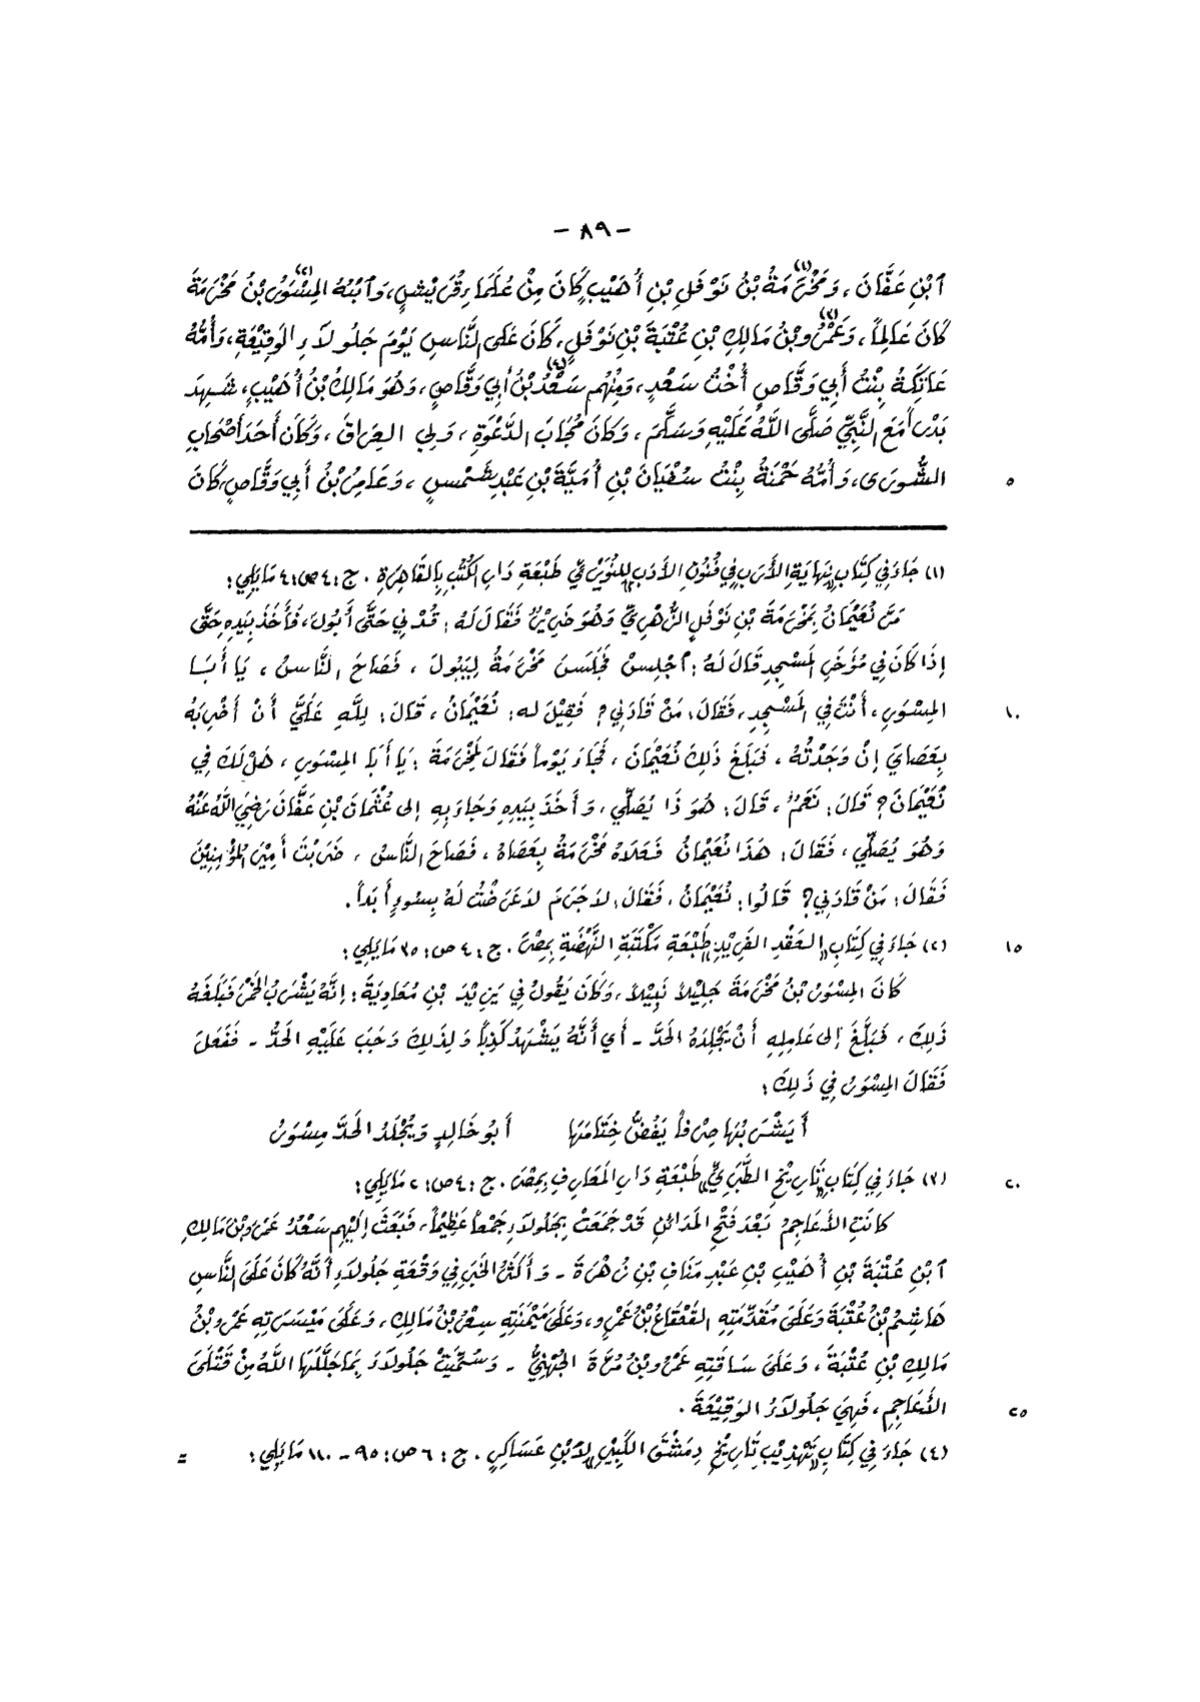 - ٨٩ -
ٱبْنِ عَفَّانَ، وَمَخْرَمَةُ(١) بْنُ نَوْفَلِ بْنِ أُهَيْبٍ كَانَ مِنْ عُلَمَاءِ قُرَيْشٍ، وَٱبْنُهُ المِسْوَرُ(٢) بْنُ مَخْرَمَةَ
كَانَ عَالِماً، وَعَمْرُو(٣) بْنُ مَالِكِ بْنِ عُتْبَةَ بْنِ نَوْفَلٍ، كَانَ عَلَى النَّاسِ يَوْمَ جَلُولَاءِ الوَقِيْعَةِ، وَأُمُّهُ
عَاتِكَةُ بِنْتُ أَبِي وَقَّاصٍ أُخْتُ سَعْدٍ، وَمِنْهُم سَعْدُ(٤) بْنُ أَبِي وَقَّاصٍ، وَهُوَ مَالِكُ بْنُ أُهَيْبٍ، شَهِدَ
بَدْراً مَعَ النَّبِيِّ صَلَّى اللَّهُ عَلَيْهِ وَسَلَّمَ، وَكَانَ مُجَابَ الدَّعْوَةِ، وَلِيَ العِرَاقَ، وَكَانَ أَحَدَ أَصْحَابِ
الشُّورَى، وَأُمُّهُ حَمْنَةُ بِنْتُ سُفْيَانَ بْنِ أُمَيَّةَ بْنِ عَبْدِ شَمْسٍ، وَعَامِرُ بْنُ أَبِي وَقَّاصٍ، كَانَ
٥
(١) جَاءَ فِي كِتَابِ «نِهَايَةِ الأَرَبِ فِي فُنُونِ الأَدَبِ» لِلنُّوَيْرِيِّ طَبْعَةِ دَارِ الكُتُبِ بِالقَاهِرَةِ. ج: ٤ ص: ٤ مَا يَلِي:
مَرَّ نُعَيْمَانُ بِمَخْرَمَةَ بْنِ نَوْفَلٍ الزُّهْرِيِّ وَهُوَ ضَرِيْرٌ فَقَالَ لَهُ: قُدْنِي حَتَّى أَبُولَ، فَأَخَذَ بِيَدِهِ حَتَّى
إِذَا كَانَ فِي مُؤَخَّرِ المَسْجِدِ قَالَ لَهُ: ٱجْلِسْ فَجَلَسَ مَخْرَمَةُ لِيَبُولَ، فَصَاحَ النَّاسُ، يَا أَبَا
المِسْوَرِ، أَنْتَ فِي المَسْجِدِ، فَقَالَ: مَنْ قَادَنِي؟ فَقِيْلَ له: نُعَيْمَانُ، قَالَ: لِلَّهِ عَلَيَّ أَنْ أَضْرِبَهُ
١٠
بِعَصَايَ إِنْ وَجَدْتُهُ، فَبَلَغَ ذَلِكَ نُعَيْمَانَ، فَجَاءَ يَوْماً فَقَالَ لِمَخْرَمَةَ: يَا أَبَا المِسْوَرِ، هَلْ لَكَ فِي
نُعَيْمَانَ؟ قَالَ: نَعَمْ، قَالَ: هُوَ ذَا يُصَلِّي، وَأَخَذَ بِيَدِهِ وَجَاءَ بِهِ إلى عُثْمَانَ بْنِ عَفَّانَ رَضِيَ اللَّهُ عَنْهُ
وَهُوَ يُصَلِّي، فَقَالَ: هَذَا نُعَيْمَانُ فَعَلَاهُ مَخْرَمَةُ بِعَصَاهُ، فَصَاحَ النَّاسُ، ضَرَبْتَ أَمِيْرَ المُؤْمِنِيْنَ
فَقَالَ: مَنْ قَادَنِي؟ قَالُوا: نُعَيْمَانُ، فَقَالَ: لَا جَرَمَ لَا عَرَضْتُ لَهُ بِسُوءٍ أَبَداً.
(٢) جَاءَ فِي كِتَابِ «العَقْدِ الفَرِيْدِ» طَبْعَةِ مَكْتَبَةِ النَّهْضَةِ بِمِصْرَ. ج: ٤ ص: ٣٥ مَا يَلِي:
١٥
كَانَ المِسْوَرُ بْنُ مَخْرَمَةَ جَلِيْلاً نَبِيْلاً، وَكَانَ يَقُولُ فِي يَزِيْدَ بْنِ مُعَاوِيَةَ: إِنَّهُ يَشْرَبُ الخَمْرَ فَبَلَغَهُ
ذَلِكَ، فَبَلَّغَ إِلى عَامِلِهِ أَنْ يَجْلِدَهُ الحَدَّ - أي أَنَّهُ يَشْهَدُ كَذِباً وَلِذَلِكَ وَجَبَ عَلَيْهِ الحَدُّ - فَفَعَلَ
فَقَالَ المِسْوَرُ فِي ذَلِكَ:
أَيَشْرَبُهَا صِرْفاً يَفُضُّ خِتَامَهَا    أَبُو خَالِدٍ وَيُجْلَدُ الحَدَّ مِسْوَرُ
(٣) جَاءَ فِي كِتَابِ «تَارِيْخِ الطَّبَرِيِّ» طَبْعَةِ دَارِ المَعَارِفِ بِمِصْرَ. ج: ٤ ص: ٢ مَا يَلِي:
٢٠
كَانَتِ الأَعَاجِمُ بَعْدَ فَتْحِ المَدَائِنِ قَدْ جَمَعَتْ بِجَلُولَاءِ جَمْعاً عَظِيْماً، فَبَعَثَ إِلَيْهِم سَعْدُ عَمْرَو بْنَ مَالِكِ
ٱبْنِ عُتْبَةَ بْنِ أُهَيْبِ بْنِ عَبْدِ مَنَافِ بْنِ زُهْرَةَ - وَأَكْثَرُ الخَبَرِ فِي وَقْعَةِ جَلُولَاءِ أَنَّهُ كَانَ عَلَى النَّاسِ
هَاشِمُ بْنُ عُتْبَةَ وَعَلَى مُقَدِّمَتِهِ القَعْقَاعُ بْنُ عَمْرٍو، وَعَلَى مَيْمَنَتِهِ سِعْرُ بْنُ مَالِكٍ، وَعَلَى مَيْسَرَتِهِ عَمْرُو بْنُ
مَالِكِ بْنِ عُتْبَةَ، وَعَلَى سَاقَتِهِ عَمْرُو بْنُ مُرَّةَ الجُهَنِيُّ - وَسُمِّيَتْ جَلُولَاءُ بِمَا جَلَّلَهَا اللَّهُ مِنْ قَتْلَى
الأَعَاجِمِ، فَهِيَ جَلُولَاءُ الوَقِيْعَةَ.
٢٥
(٤) جَاءَ فِي كِتَابِ «تَهْذِيْبِ تَارِيْخِ دِمَشْقَ الكَبِيْرِ» لِابْنِ عَسَاكِرٍ. ج: ٦ ص: ٩٥ - ١١٠ مَا يَلِي: =